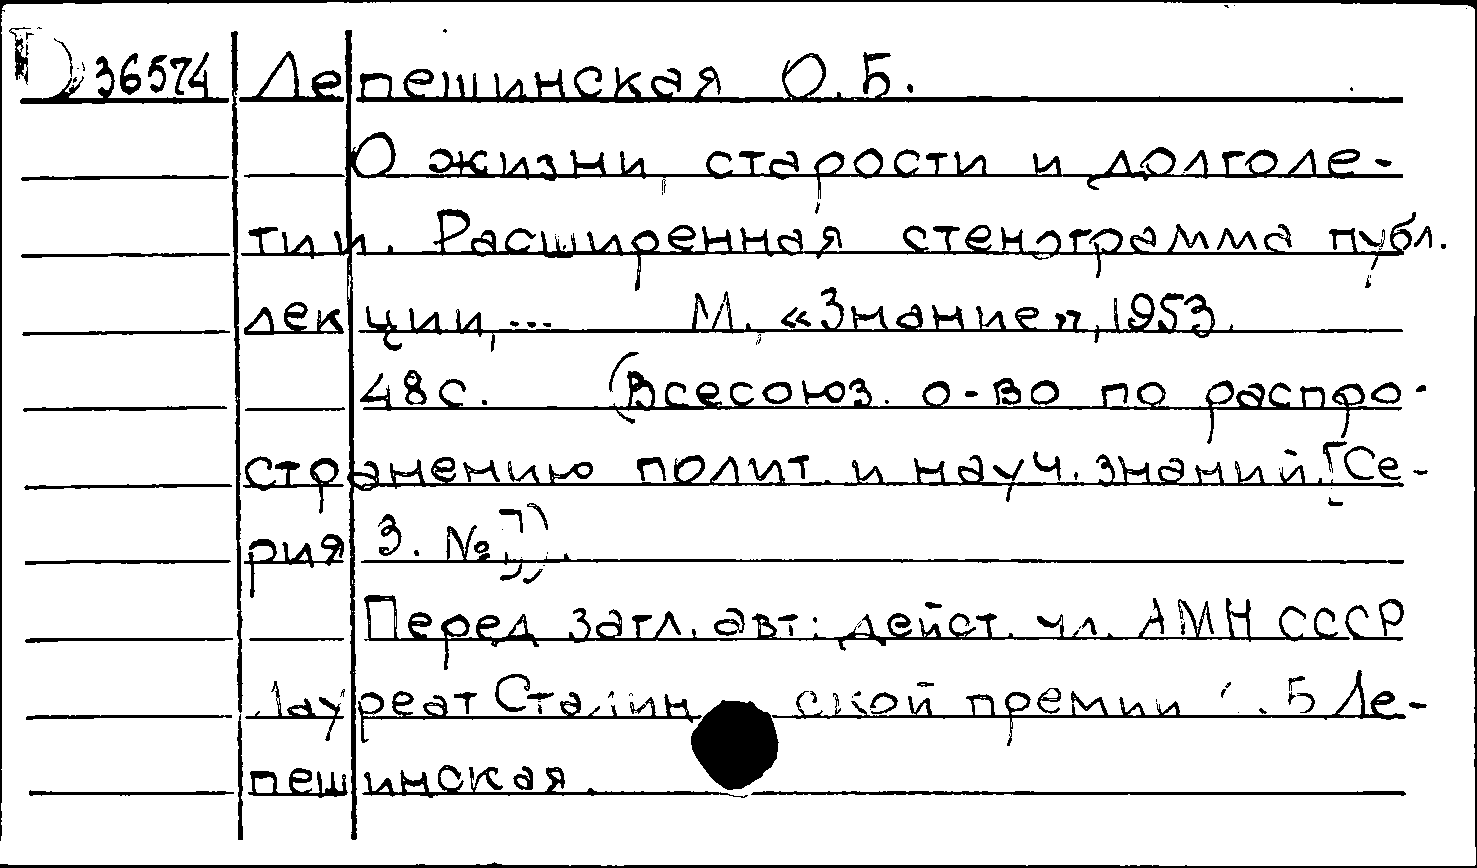 D 36574 Лепешинская О.Б.
О жизни, старости и долголе-
тии. Расширенная стенограмма публ.
лекции,... М., «Знание», 1953.
48с. (Всесоюз. о-во по распро-
странению полит. и науч. знаний. [Се-
рия 3. №]).
Перед загл. авт: дейст. чл. АМН СССР
Лауреат Сталинской премии . Б Ле-
пешинская.